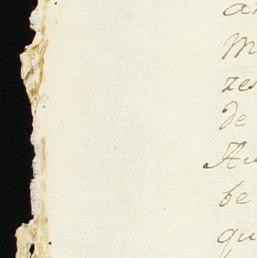 an
M
zes
de
Au
be
qu